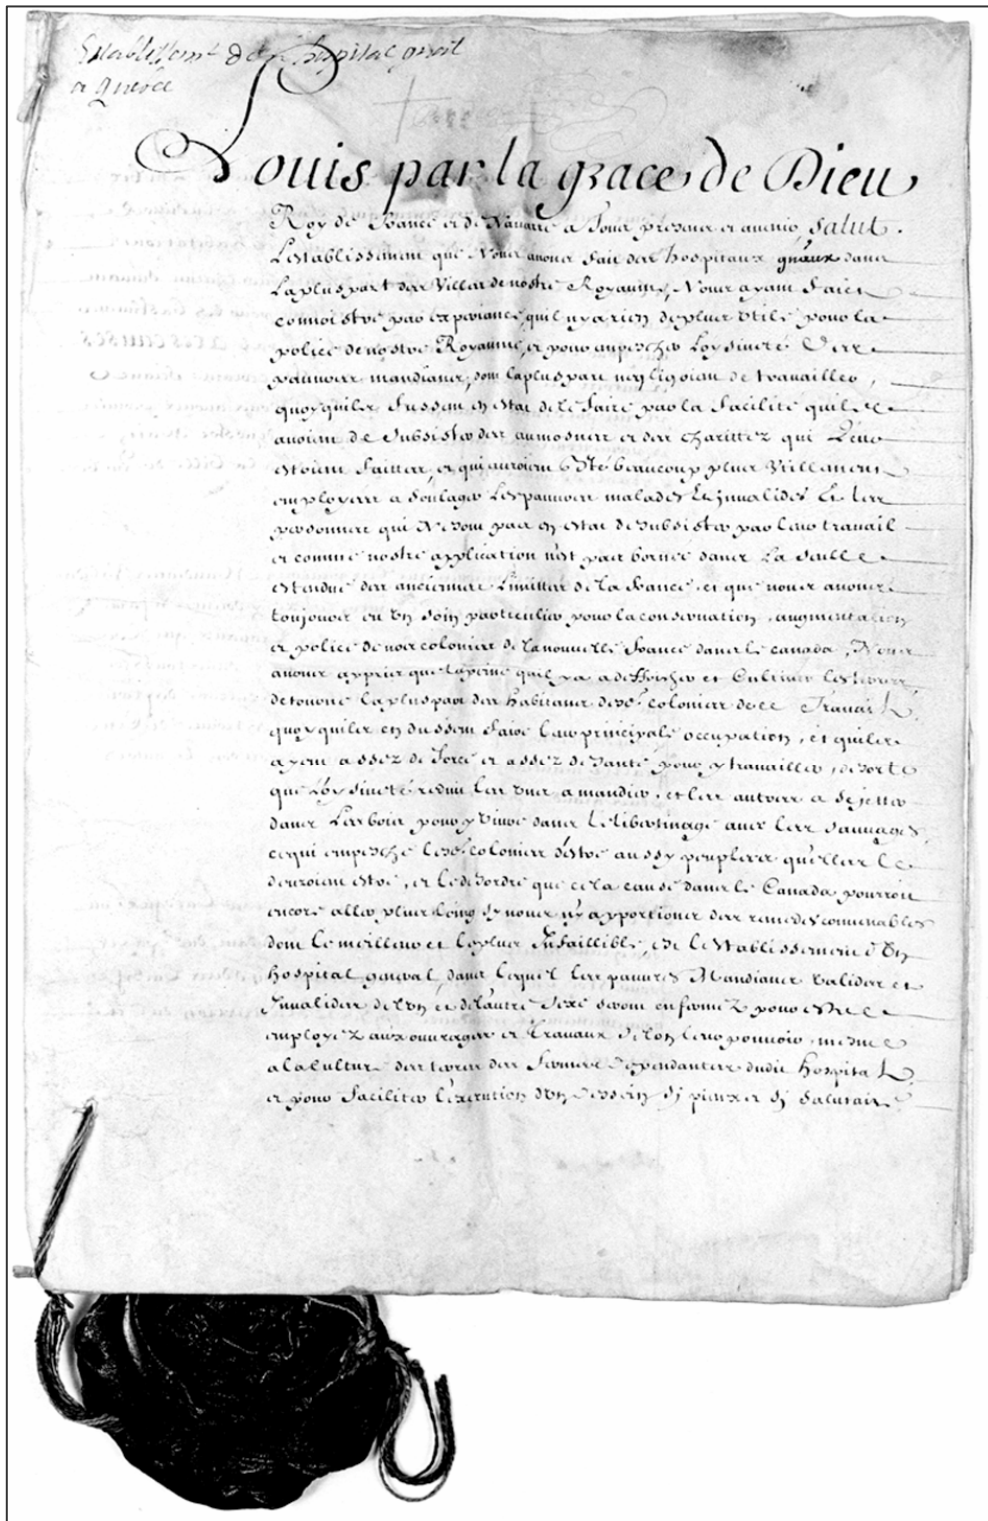 Establissemt de l'hospital gnral
a quebec
Louis par la grace de Dieu
Roy de france et de Nauarre a Tous presens et auenir, Salut.
L'establissement que Nous auons fait des hospitaux gnāux dans
La pluspart des Villes de nostre Royaume, Nous ayant faict
connoistre par experiance, quil ny a rien de plus vtile pour la
police de nostre Royaume, et pour empescher L'oysiueté Des
pauures mandians, dont la pluspart négligoient de travailler,
quoy quils fussent en estat de le faire par la facilité quils
auoient de subsister des aumosnes et des charittez qui Leur
estoient faittes, et qui auroient esté beaucoup plus Vtillement
employees a soulager Les pauures malades Les jnualides et les
personnes qui Ne sont pas en estat de subsister par leur travail
et comme nostre application n'est pas bornée dans La seulle
estendue des anciennes Limittes de la france, et que nous auons
toujours eu vn soin particulier pour la conseruation, augmentation
et police de nos colonies de la nouuelle france dans le canada, Nous
auons appris que la peine quil y a a defficher et Cultiuer les terres
detourne la pluspart des habitans desd. colonies de ce Trauail
quoy quils en dussent faire leur principale occupation, et quils
ayent assez de force et assez de santé pour y travailler, de sorte
que L'oysiueté reduit les vns a mandier, et les autres a se jetter
dans Les bois pour y viure dans Le libertinage auec les sauuages,
ce qui empesche lesd. colonies d'estre aussy peuplees qu'elles le
deuroient estre, et le desordre que cela cause dans le Canada pourroit
encore aller plus loing sy nous n'y apportions des remedes conuenables
dont le meilleur et le plus Infaillible, est l'establissement d'Vn
hospital general, dans lequel les pauures Mandians valides et
Jnualides de l'vn et de l'autre sexe seront enfermez pour estre
employez aux ouurages et trauaux selon leur pouuoir, mesme
a la culture des terres des fermes Dependantes dudit hospital
et pour faciliter l'execution d'vn dessein sj pieux et sj salutaire